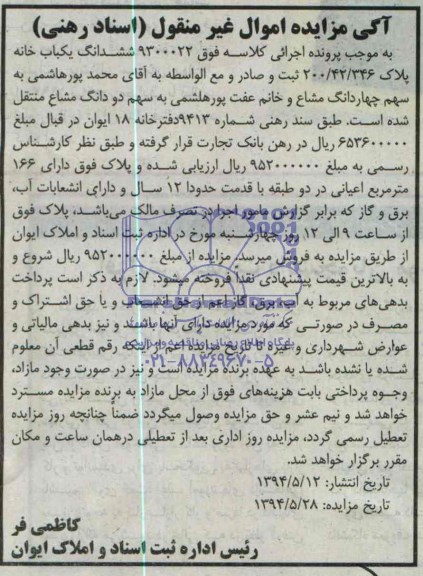 آگی مزایده اموال غیر منقول (اسناد رهنی)
به موجب پرونده اجرائی کلاسه فوق ۹۳۰۰۰۲۲ ششدانگ یکباب خانه
پلاک ۲۰۰/۴۲/۳۴۶ ثبت و صادر و مع الواسطه به آقای محمد پورهاشمی به
سهم چهاردانگ مشاع و خانم عفت پورهلشمی به سهم دو دانگ مشاع منتقل
شده است. طبق سند رهنی شماره ۹۴۱۳دفترخانه ۱۸ ایوان در قبال مبلغ
۶۵۳۶۰۰۰۰۰ ریال در رهن بانک تجارت قرار گرفته و طبق نظر کارشناس
رسمی به مبلغ ۹۵۲۰۰۰۰۰۰ ریال ارزیابی شده و پلاک فوق دارای ۱۶۶
مترمربع اعیانی در دو طبقه با قدمت حدودا ۱۲ سال و دارای انشعابات آب،
برق و گاز که برابر گزارش مامور اجرا در تصرف مالک می‌باشد، پلاک فوق
از ساعت ۹ الی ۱۲ روز چهارشنبه مورخ در اداره ثبت اسناد و املاک ایوان
از طریق مزایده به فروش میرسد. مزایده از مبلغ ۹۵۲۰۰۰۰۰۰ ریال شروع و
به بالاترین قیمت پیشنهادی نقدا فروخته میشود. لازم به ذکر است پرداخت
بدهی‌های مربوط به آب، برق، گاز اعم از حق انشعاب و یا حق اشتراک و
مصرف در صورتی که مورد مزایده دارای آنها باشند و نیز بدهی مالیاتی و
عوارض شهرداری و غیره تا تاریخ مزایده اعم از اینکه رقم قطعی آن معلوم
شده یا نشده باشد به عهده برنده مزایده است و نیز در صورت وجود مازاد،
وجوه پرداختی بابت هزینه‌های فوق از محل مازاد به برنده مزایده مسترد
خواهد شد و نیم عشر و حق مزایده وصول میگردد ضمناً چنانچه روز مزایده
تعطیل رسمی گردد، مزایده روز اداری بعد از تعطیلی درهمان ساعت و مکان
مقرر برگزار خواهد شد.
تاریخ انتشار: ۱۳۹۴/۵/۱۲
تاریخ مزایده: ۱۳۹۴/۵/۲۸
کاظمی فر
رئیس اداره ثبت اسناد و املاک ایوان
۰۲۱-۸۸۳۴۹۶۷۰-۵